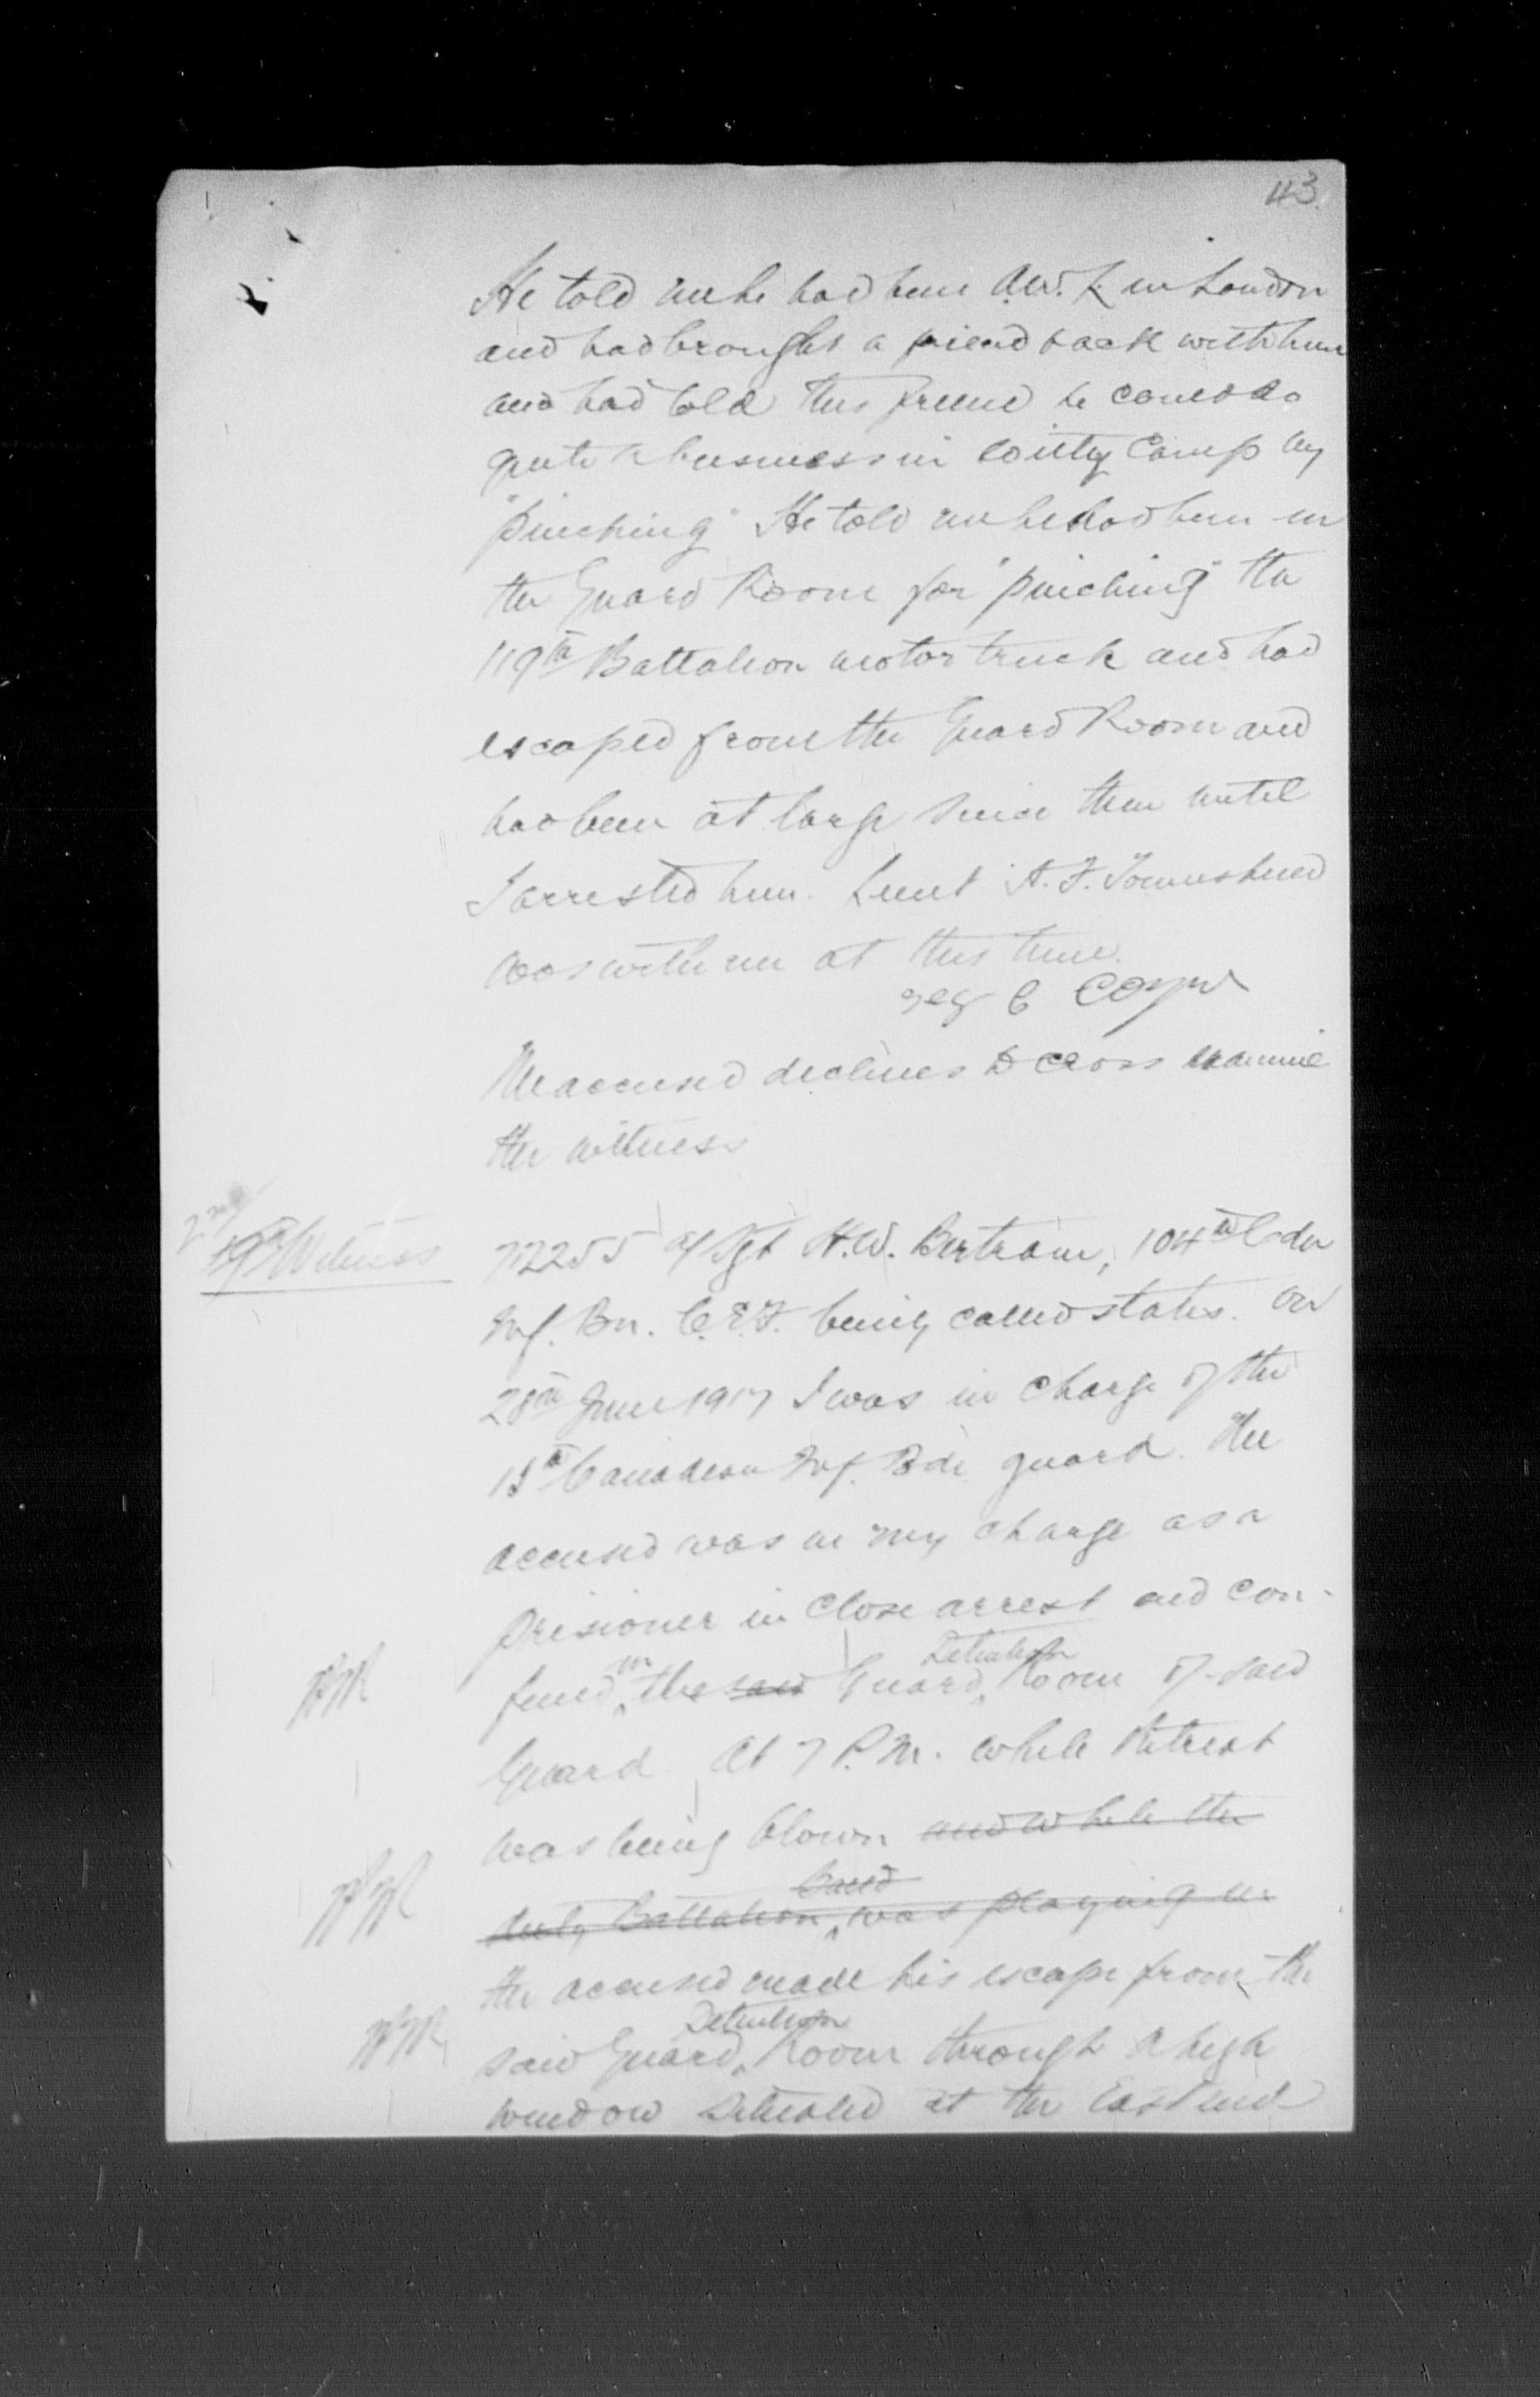 43.
He told me he had been A.W.L. in London
and had brought a friend back with him
and had told this friend he could do
quite a business in Witley Camp by
"pinching" He told me he had been in
the Guard Room for "pinching" the
119th Battalion motor truck and had
escaped from the Guard Room and
had been at large since then until
I arrested him. Lieut A. F. Townshend
was with me at this time.
C
The accused declines to cross examine
the witness
2nd
19th Witness
72255 a/Sgt H.W. Bertram, 104th Cdn
Inf. Bn. C.E.F. being called states. On
28th June 1917 I was in charge of the
13th Canadian Inf. Bde. guard. The
accused was in my charge as a
prisioner in close arrest and con-
fined in the said Guard Detention Room of said
Guard. At 7 P.M. while Retreat
was being blown and while the
duty Battalion Band was playing in
the accused made his escape from the
said Guard Detention Room through a high
window situated at the East end